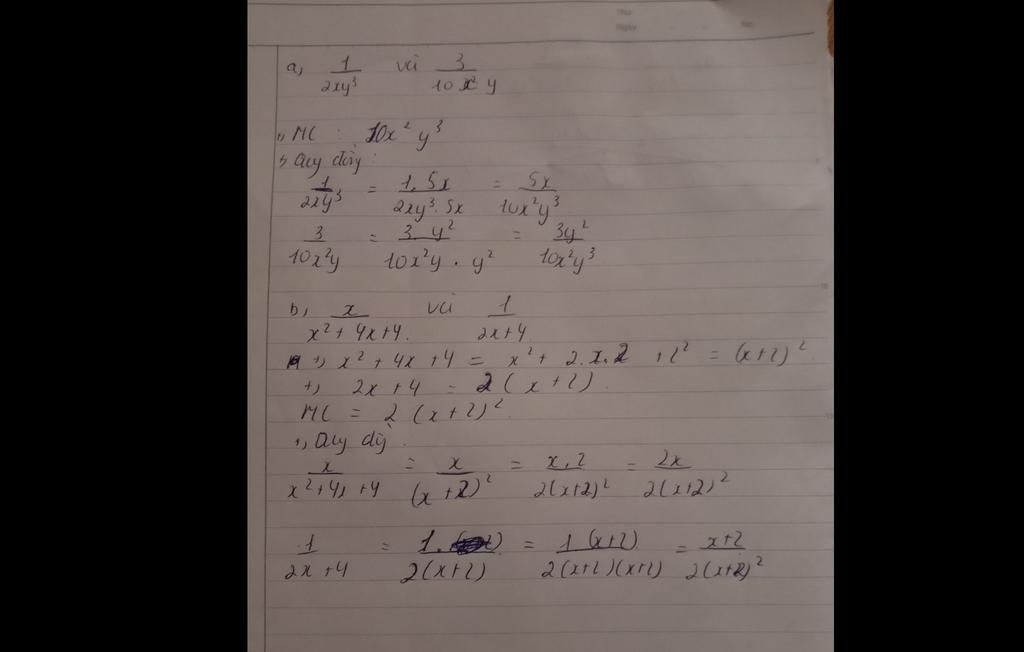 a, 1/2xy³ và 3/10x²y
+, MC : 10x²y³
+, Quy đồng :
1/2xy³ = 1.5x/2xy³.5x = 5x/10x²y³
3/10x²y = 3.y²/10x²y.y² = 3y²/10x²y³
b, x/x²+4x+4. và 1/2x+4
+, x²+4x+4 = x²+2.x.2+2² = (x+2)²
+, 2x+4 = 2(x+2).
MC = 2(x+2)²
+, Quy đồ :
x/x²+4x+4 = x/(x+2)² = x.2/2(x+2)² = 2x/2(x+2)²
1/2x+4 = 1./2(x+2) = 1(x+2)/2(x+2)(x+2) = x+2/2(x+2)²